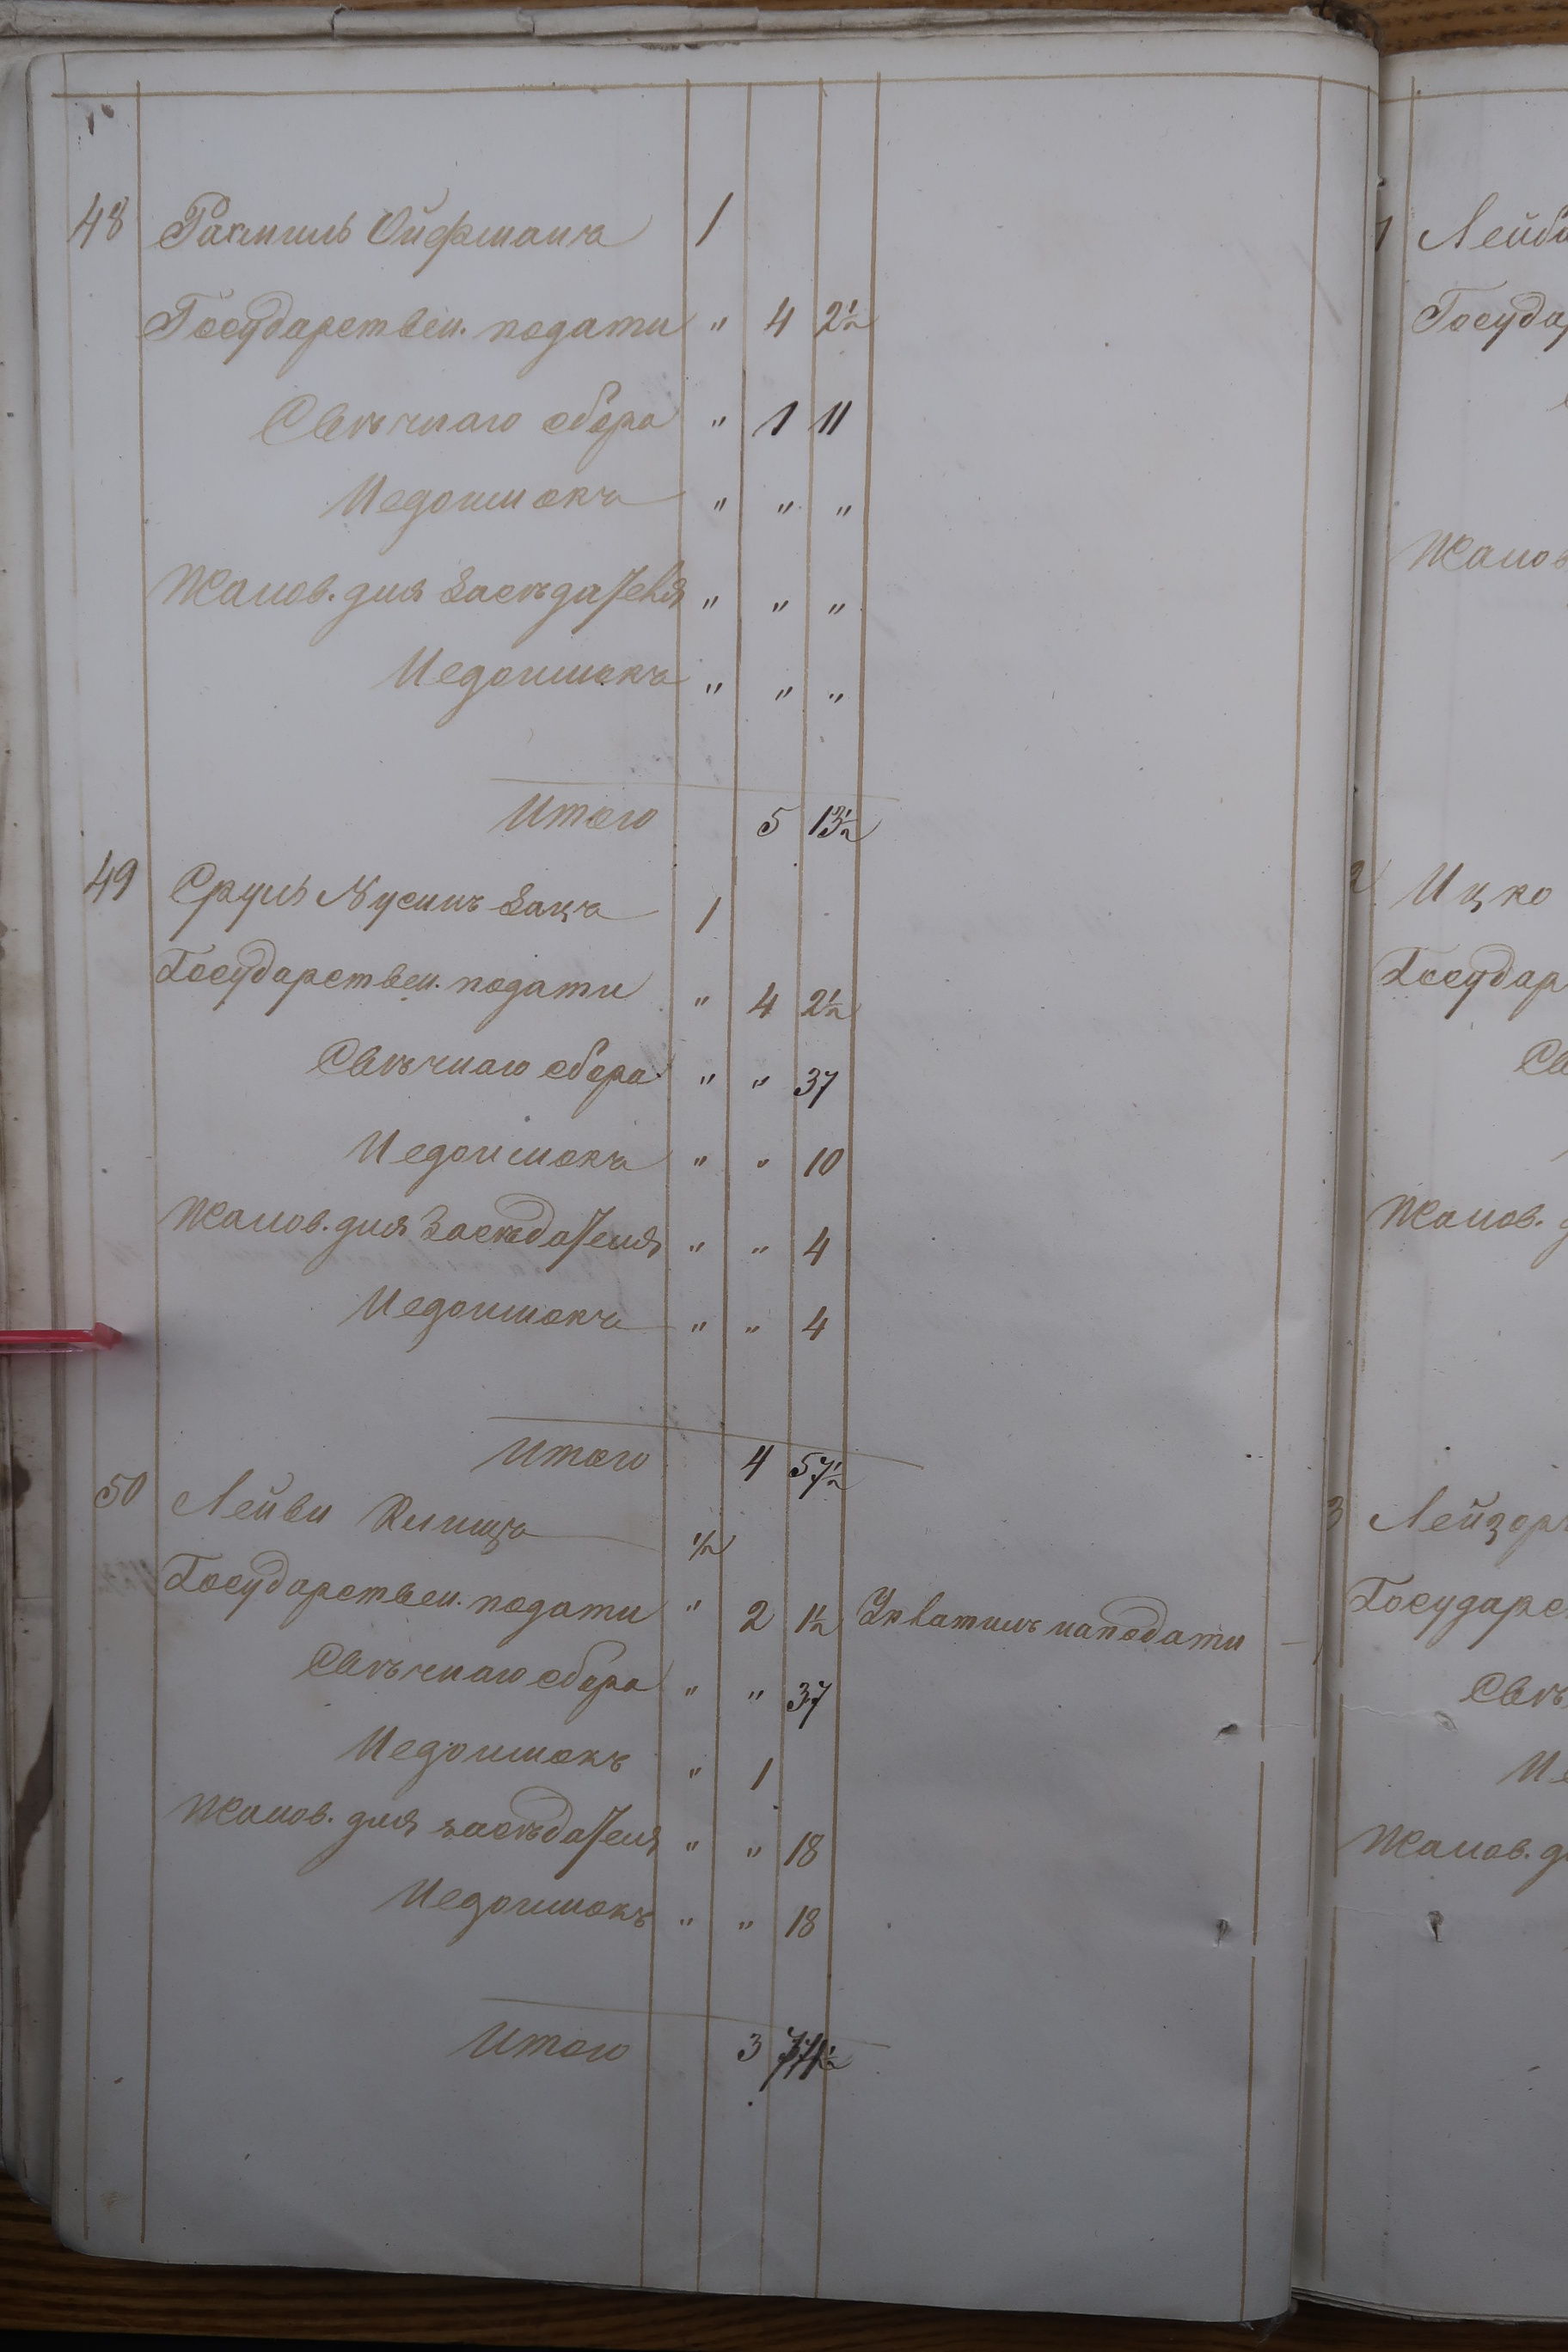 48 Рахмиль Ойфманъ 1
Государствен. подати " 4 2½
Свѣчнаго сбора " 1 11
Недоимокъ " " "
Жалов. для Засѣдателя " " "
Недоимокъ " " "
Итого 5 13½
49 Сруль Нусинъ Зацъ 1
Государствен. подати " 4 2½
Свѣчнаго сбора " " 37
Недоимокъ " " 10
Жалов. для Засѣдателя " " 4
Недоимокъ " " 4
Итого 4 57½
50 Лейви 1/2
Государствен. подати " 2 1½ наподати
Свѣчнаго сбора " " 37
Недоимокъ " 1
Жалов. для засѣдателя " " 18
Недоимокъ " " 18
Итого 3
Лейб
Госуда
Жалов
2 Ицко
Государ
Св
Жалов.
3 Лейзор
Государс
Свѣ
Не
Жалов. д